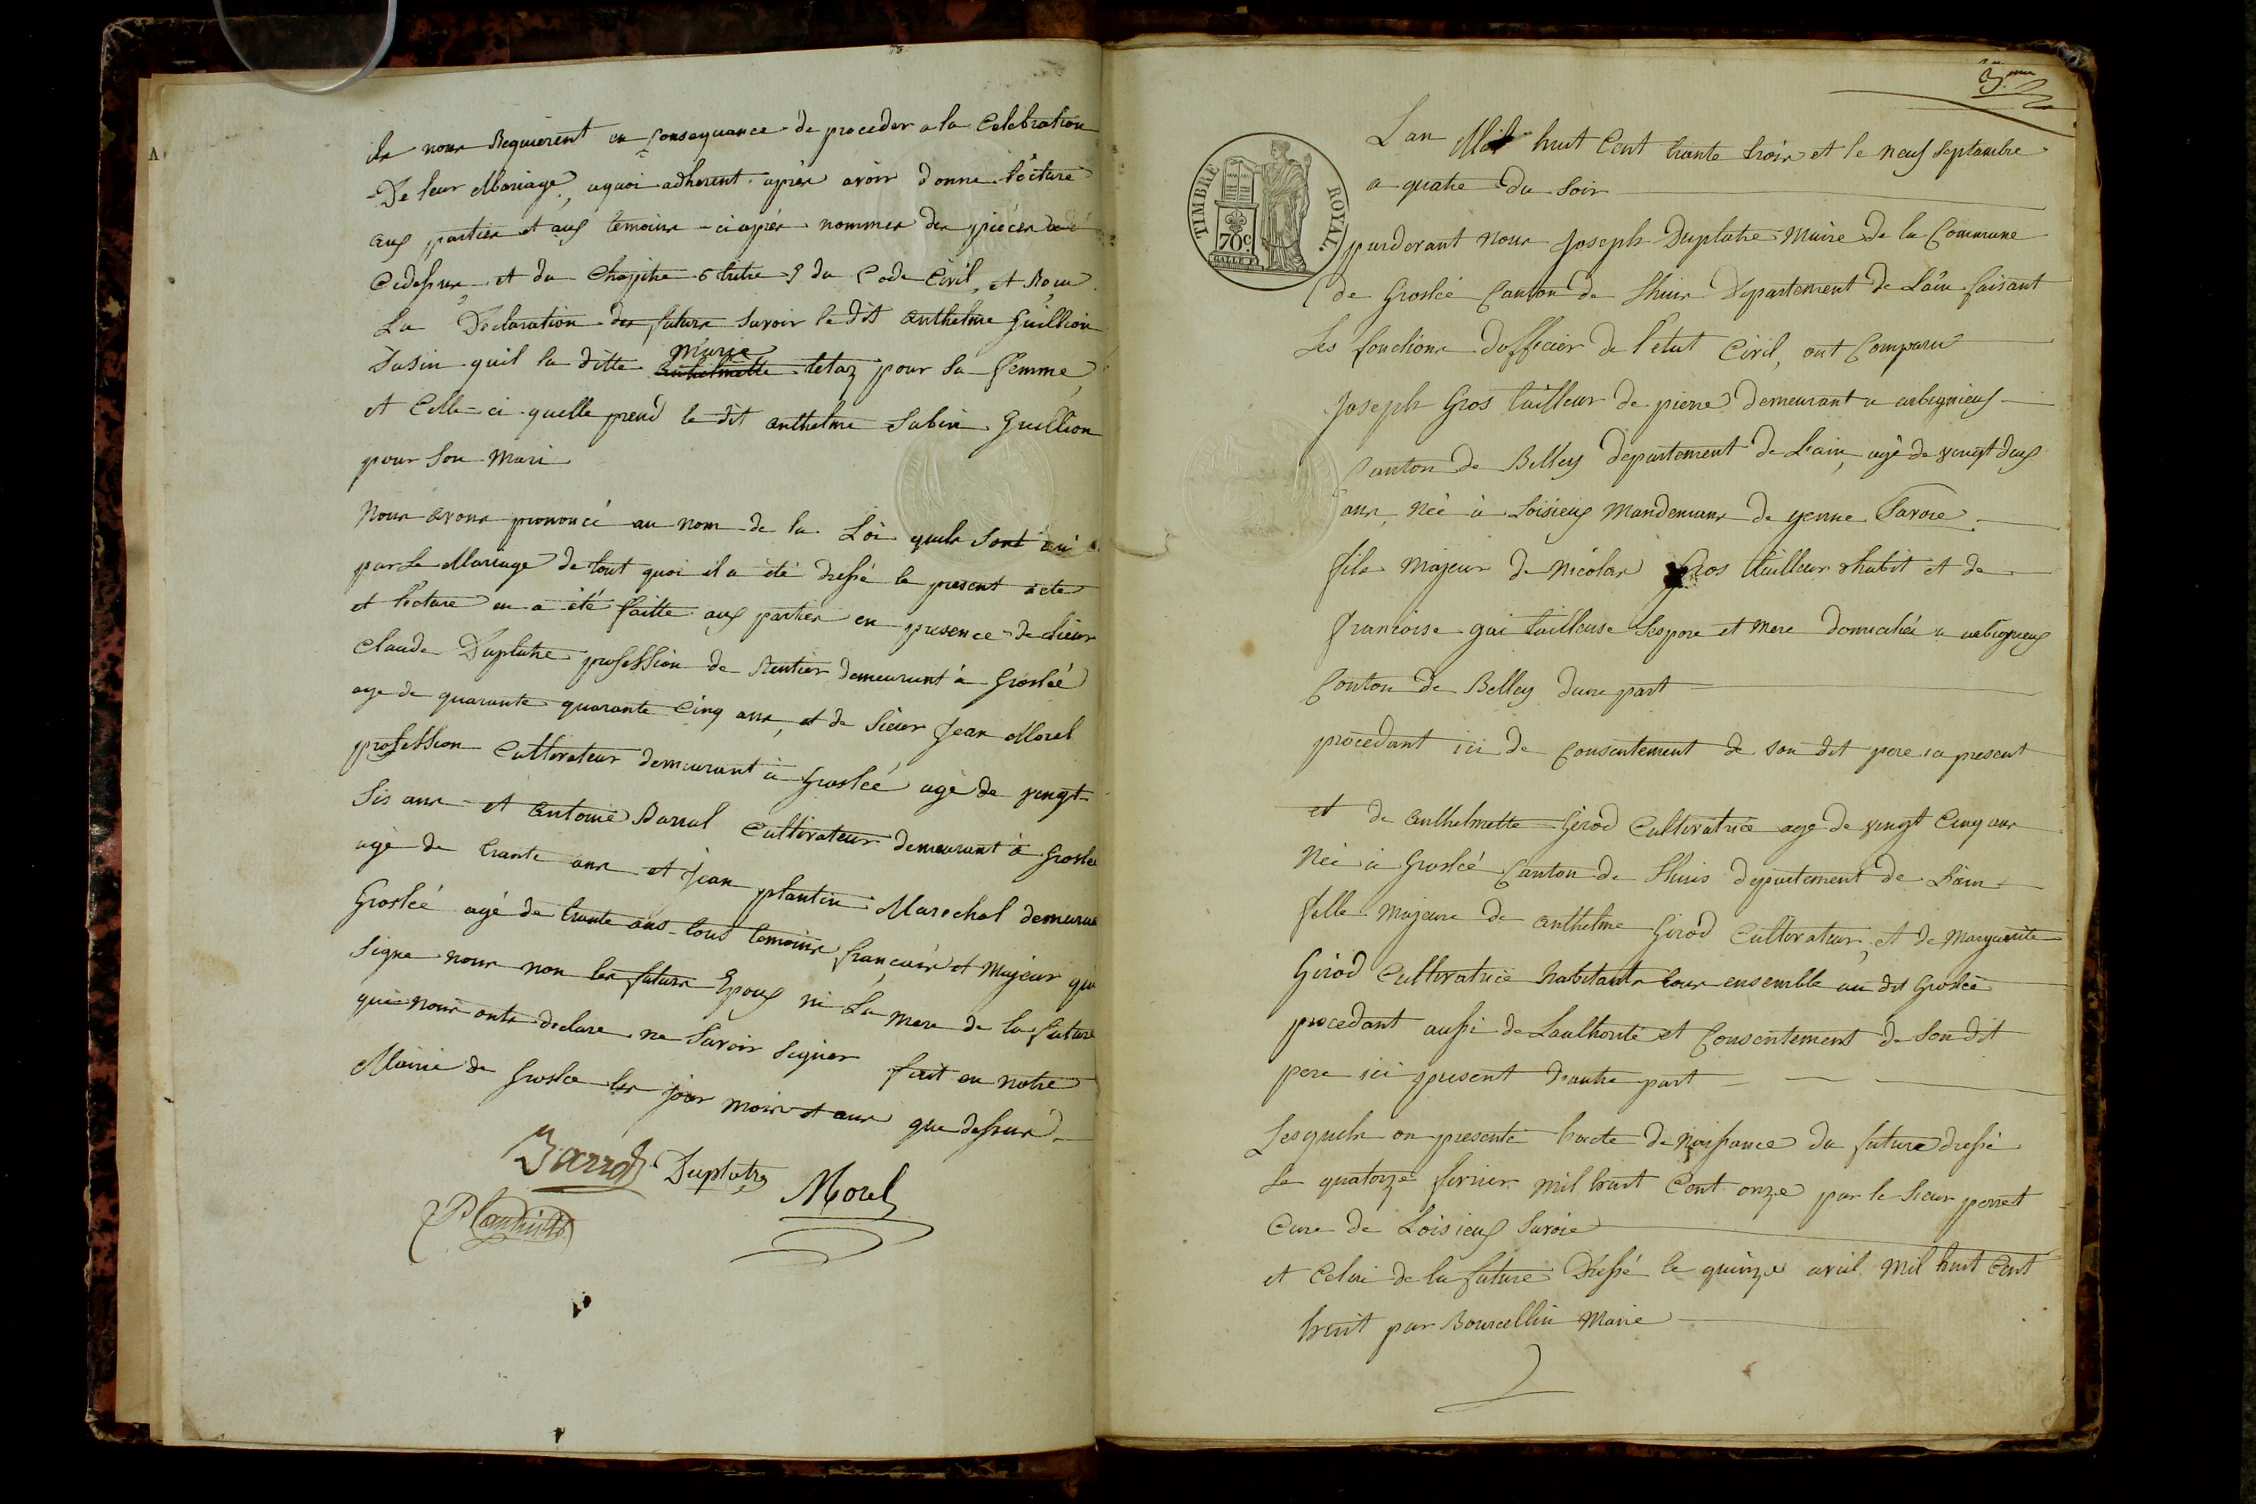 ils nous Requierent en Consequance de proceder a la Celebration
De leur Mariage, aquoi adherent apres avoir donne lecture
aux parties et aux temoins ci apres nommes des pieces
Cidessus et du Chapitre 6 titre 5 du Code Civil, et Recu
La Declaration des futurs Savoir le dit anthelme Guillion
Sabin quil la ditte anthelmette Marie tetaz pour Sa femme,
et Celle-ci quelle prend le dit anthelme Sabin Guillion
pour Son Mari
Nous avons prononcé au nom de la Loi quils Sont uni
par Le Mariage de tout quoi il a été dressé le present acte
et lecture en a été faitte aux parties en presence de Sieur
Claude Duplatre profession de Rentier demeurant à Groslée
age de quarante quarante Cinq ans, et de Sieur Jean Morel
profession Cultivateur demeurant à Groslée agé de vingt
Sis ans et Antoine Barral Cultivateur demeurant à Groslée
agé de trante ans et Jean plantin Marechal demeurant
Groslée agé de trante ans tous temoins français et Majeur qui
Signe nous non les futurs Epoux ni La Mere de la future
qui nous onts declare ne Savoir Signer fait en notre
Mairie de Groslee les jour mois et ans que dessus
Barral Duplatre Morel
Plantin
3.me
TIMBRE ROYAL.
70c.
Lan Mil huit Cent trante trois et le neuf Septambre
a quatre du Soir
pardevant nous Joseph Duplatre Maire de la Commune
de Groslée Canton de Lhuis Departement de Lain faisant
Les fonctions dofficier de l'etat Civil, ont Comparu
Joseph Gros tailleur de pierre demeurant a arbignieux
Canton de Belley departement de Lain, agé de vingt deux
ans, Née à Loisieux Mandemans de yenne Savoie
fils Majeur de Nicolas Gros tailleur dhabit et de
francoise gai tailleuse Ses pere et Mere domicilié a arbignieux
Canton de Belley dune part
procedant ici de Consentement de son dit pere ici present
et de anthelmette Girod Cultivatrice age de vingt Cinq ans
Née à Groslée Canton de Lhuis departement de Lain
felle Majeure de anthelme Girod Cultivateur, et de Marguerite
Girod Cultivatrice habitants tous ensemble au dit Groslée
procedant aussi de Lauthorité et Consentement de Son dit
pere ici present dautre part
Lesquels on presenté lacte de Naissance du future dressé
Le quatorze fevrier mil huit Cent onze par le Sieur perret
Cure de Loisieux Savoie
et Celui de la future Dressé le quinze avril Mil huit Cent
huit par Bourcellin Maire